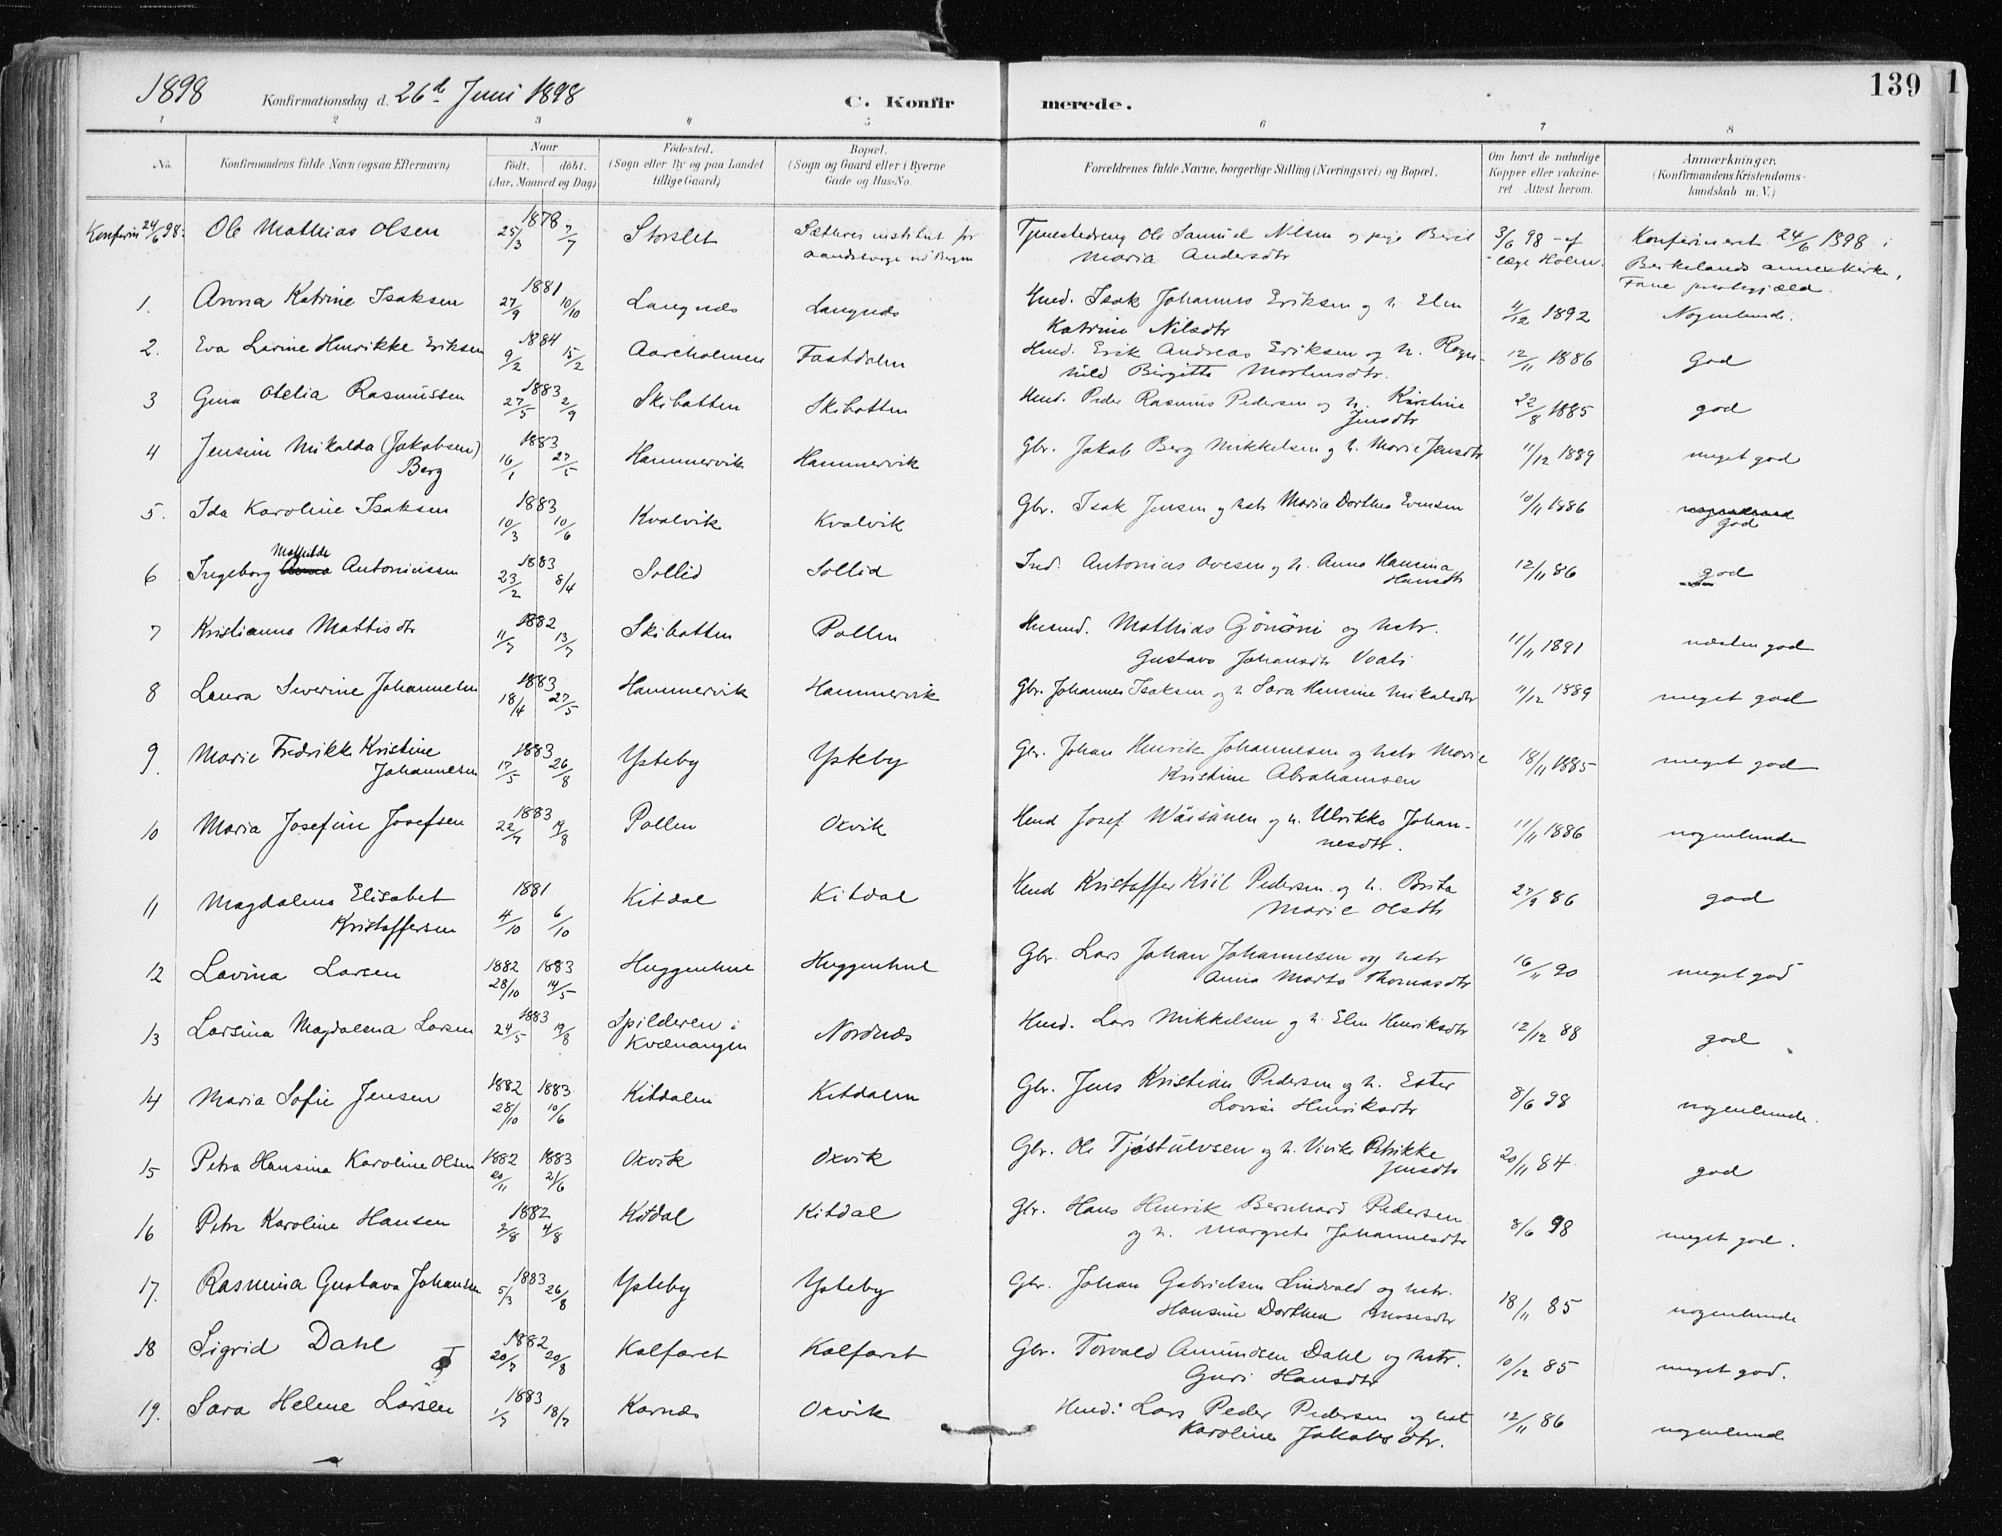 1898 Konfirmationsdag d. 26de Juni 1898 C. Konfirmerede. 139
1 2 3 4 5 6 7 8
No. Konfirmandens fulde Navn (ogsaa Efternavn) Naar født. døbt. (Aar, Maaned og Dag) Fødested. (Sogn eller By og paa Landet tillige Gaard) Bopæl. (Sogn og Gaard eller i Byerne Gade og Hus-No. Forældrenes fulde Navne, borgerlige Stilling (Næringsvei) og Bopæl. Om havt de naturlige Kopper eller vakcineret Attest herom. Anmærkninger. (Konfirmandens Kristendomskundskab m. V.)
Konfirm 24/6 98. Ole Mathias Olsen 1878 25/3 7/7 Storslet Sæthres institut for aandssvage ved Bergen Tjenestedreng Ole Samuel Nilsen og pige Berit Maria Andersdtr 3/6 98 - af læge Holm. Konfirmeret 24/6 1898 i Birkelands annexkirke, Fane prestegjæld.
1. Anna Katrine Isaksen 1881 27/9 10/10 Langnæs Langnæs Hmd. Isak Johannes Eriksen og h. Elen Katrine Nilsdtr 4/12 1892 Nogenlunde.
2. Eva Lovine Henrikke Eriksen 1884 9/2 15/2 Aareholmen Fastdalen Hmd. Erik Andreas Eriksen og h. Ragnhild Birgitte Mortensdtr. 12/11 1886 God
3 Gina Otelia Rasmussen 1883 27/5 2/9 Skibotten Skibotten Hmd. Peder Rasmus Pedersen og h. Kirstine Jensdtr 22/8 1885 god
4 Jensine Mikalda (Jakobsen) Berg 1883 16/1 27/5 Hammervik Hammervik Gbr. Jakob Berg Mikkelsen og h. Marie Jensdtr 11/12 1889 meget god
5. Ida Karoline Isaksen 1883 10/3 10/6 Kvalvik Kvalvik Gbr. Isak Jensen og hstr Maria Dorthea Evensen 10/11 1886 god
6 Ingeborg Mathilde Anna Antoniussen 1883 23/2 8/4 Sollid Sollid Ind. Antonius Ovesen og h. Anne Hansina Hansdtr 12/11 86 god
7 Kristianna Mattisdtr 1882 11/7 13/7 Skibotten Pollen Husmd. Mathias Gönäni og hstr. Gustava Johansdtr Voati 11/11 1891 næsten god
8 Laura Severine Johannesen 1883 18/4 27/5 Hammervik Hammervik Gbr. Johannes Isaksen og h Sara Hensine Mikalsdtr 11/12 1889 meget god
9. Marie Fredrikke Kristine Johannesen 1883 17/5 26/8 Ysteby Ysteby Gbr. Johan Henrik Johannesen og hstr Marie Kristine Abrahamsen 18/11 1885 meget god
10 Maria Josefine Josefsen 1883 22/7 19/8 Pollen Oxvik Hmd Josef Wäisänen og h. Ulrikka Johannesdtr. 11/11 1886 nogenlunde
11 Magdalena Elisabet Kristoffersen 1881 4/10 6/10 Kitdal Kitdal Hmd Kristoffer Kiil Pedersen og h. Brita Marie Olsdtr 27/9 86 god
12 Lovina Larsen 1882 28/10 1883 14/5 Huggenhul Huggenhul Gbr. Lars Johan Johannesen og hstr Anna Marta Thomasdtr 16/11 90 meget god
13 Larsina Magdalena Larsen 1883 24/5 19/8 Spilderen i Kvænangen Nordnæs Hmd. Lars Mikkelsen og h. Elen Henriksdtr 12/12 88 god
14 Maria Sofie Jensen 1882 28/10 1883 10/6 Kitdalen Kitdalen Gbr. Jens Kristian Pedersen og h. Ester Lovise Henriksdtr 8/6 98 nogenlunde.
15 Petra Hansina Karoline Olsen 1882 20/11 1883 21/6 Oxvik Oxvik Gbr. Ole Tjøstulvsen og h. Vivike Petrikke Jensdtr 20/11 84. god
16 Petra Karoline Hansen 1882 2/8 4/8 Kitdal Kitdal Gbr. Hans Henrik Bernhard Pedersen og h. Margrete Johannesdtr 8/6 98 meget god.
17. Rasmina Gustava Johansen 1883 5/3 26/8 Ysteby Ysteby Gbr. Johan Gabrielsen Lindvald og hstr. Hansine Dorthea Mosesdtr 18/11 85 nogenlunde
18 Sigrid Dahl 1882 20/7 20/8 Kalfaret Kalfaret Gbr. Torvald Amundsen Dahl og hstr. Guri Hansdtr 10/12 85 meget god.
19. Sara Helene Larsen 1883 1/7 18/7 Karnæs Oxvik Hmd: Lars Peder Pedersen og hst Karoline Jakobsdtr. 12/11 86 nogenlunde